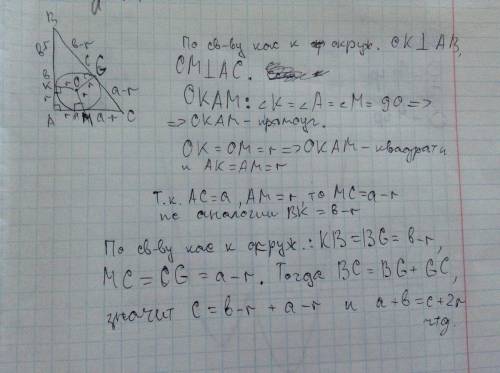 B
в-r
в-r
K
O
G
r
a-r
A
r
M
a-r
C
По св-ву кас к окруж. OK⊥AB,
OM⊥AC.
OKAM: ∠K=∠A=∠M=90 =>
=> OKAM-прямоуг.
OK=OM=r => OKAM-квадрат и
и AK=AM=r
Т.к. AC=a, AM=r, то MC=a-r
по аналогии BK=в-r
По св-ву кас к окруж.: KB=BG=в-r,
MC=CG=a-r. Тогда BC=BG+GC,
значит C=в-r+a-r и a+в=c+2r
чтд.